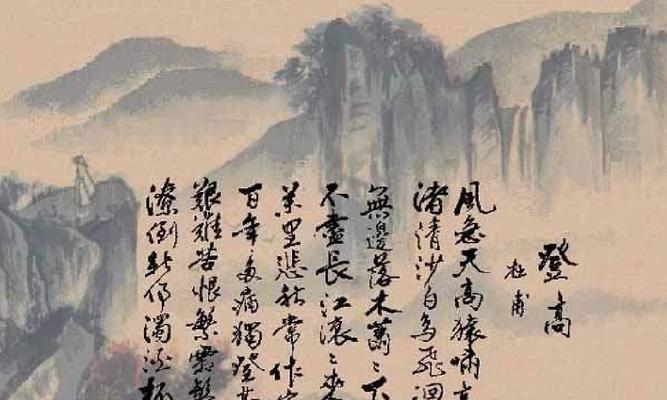 登高
杜甫
風急天高猿嘯
渚清沙白鳥飛洄
無邊落木蕭〻下
不盡長江滾〻來
萬里悲秋常作
百年多病獨登
艱難苦恨繁霜鬢
潦倒新停濁酒杯